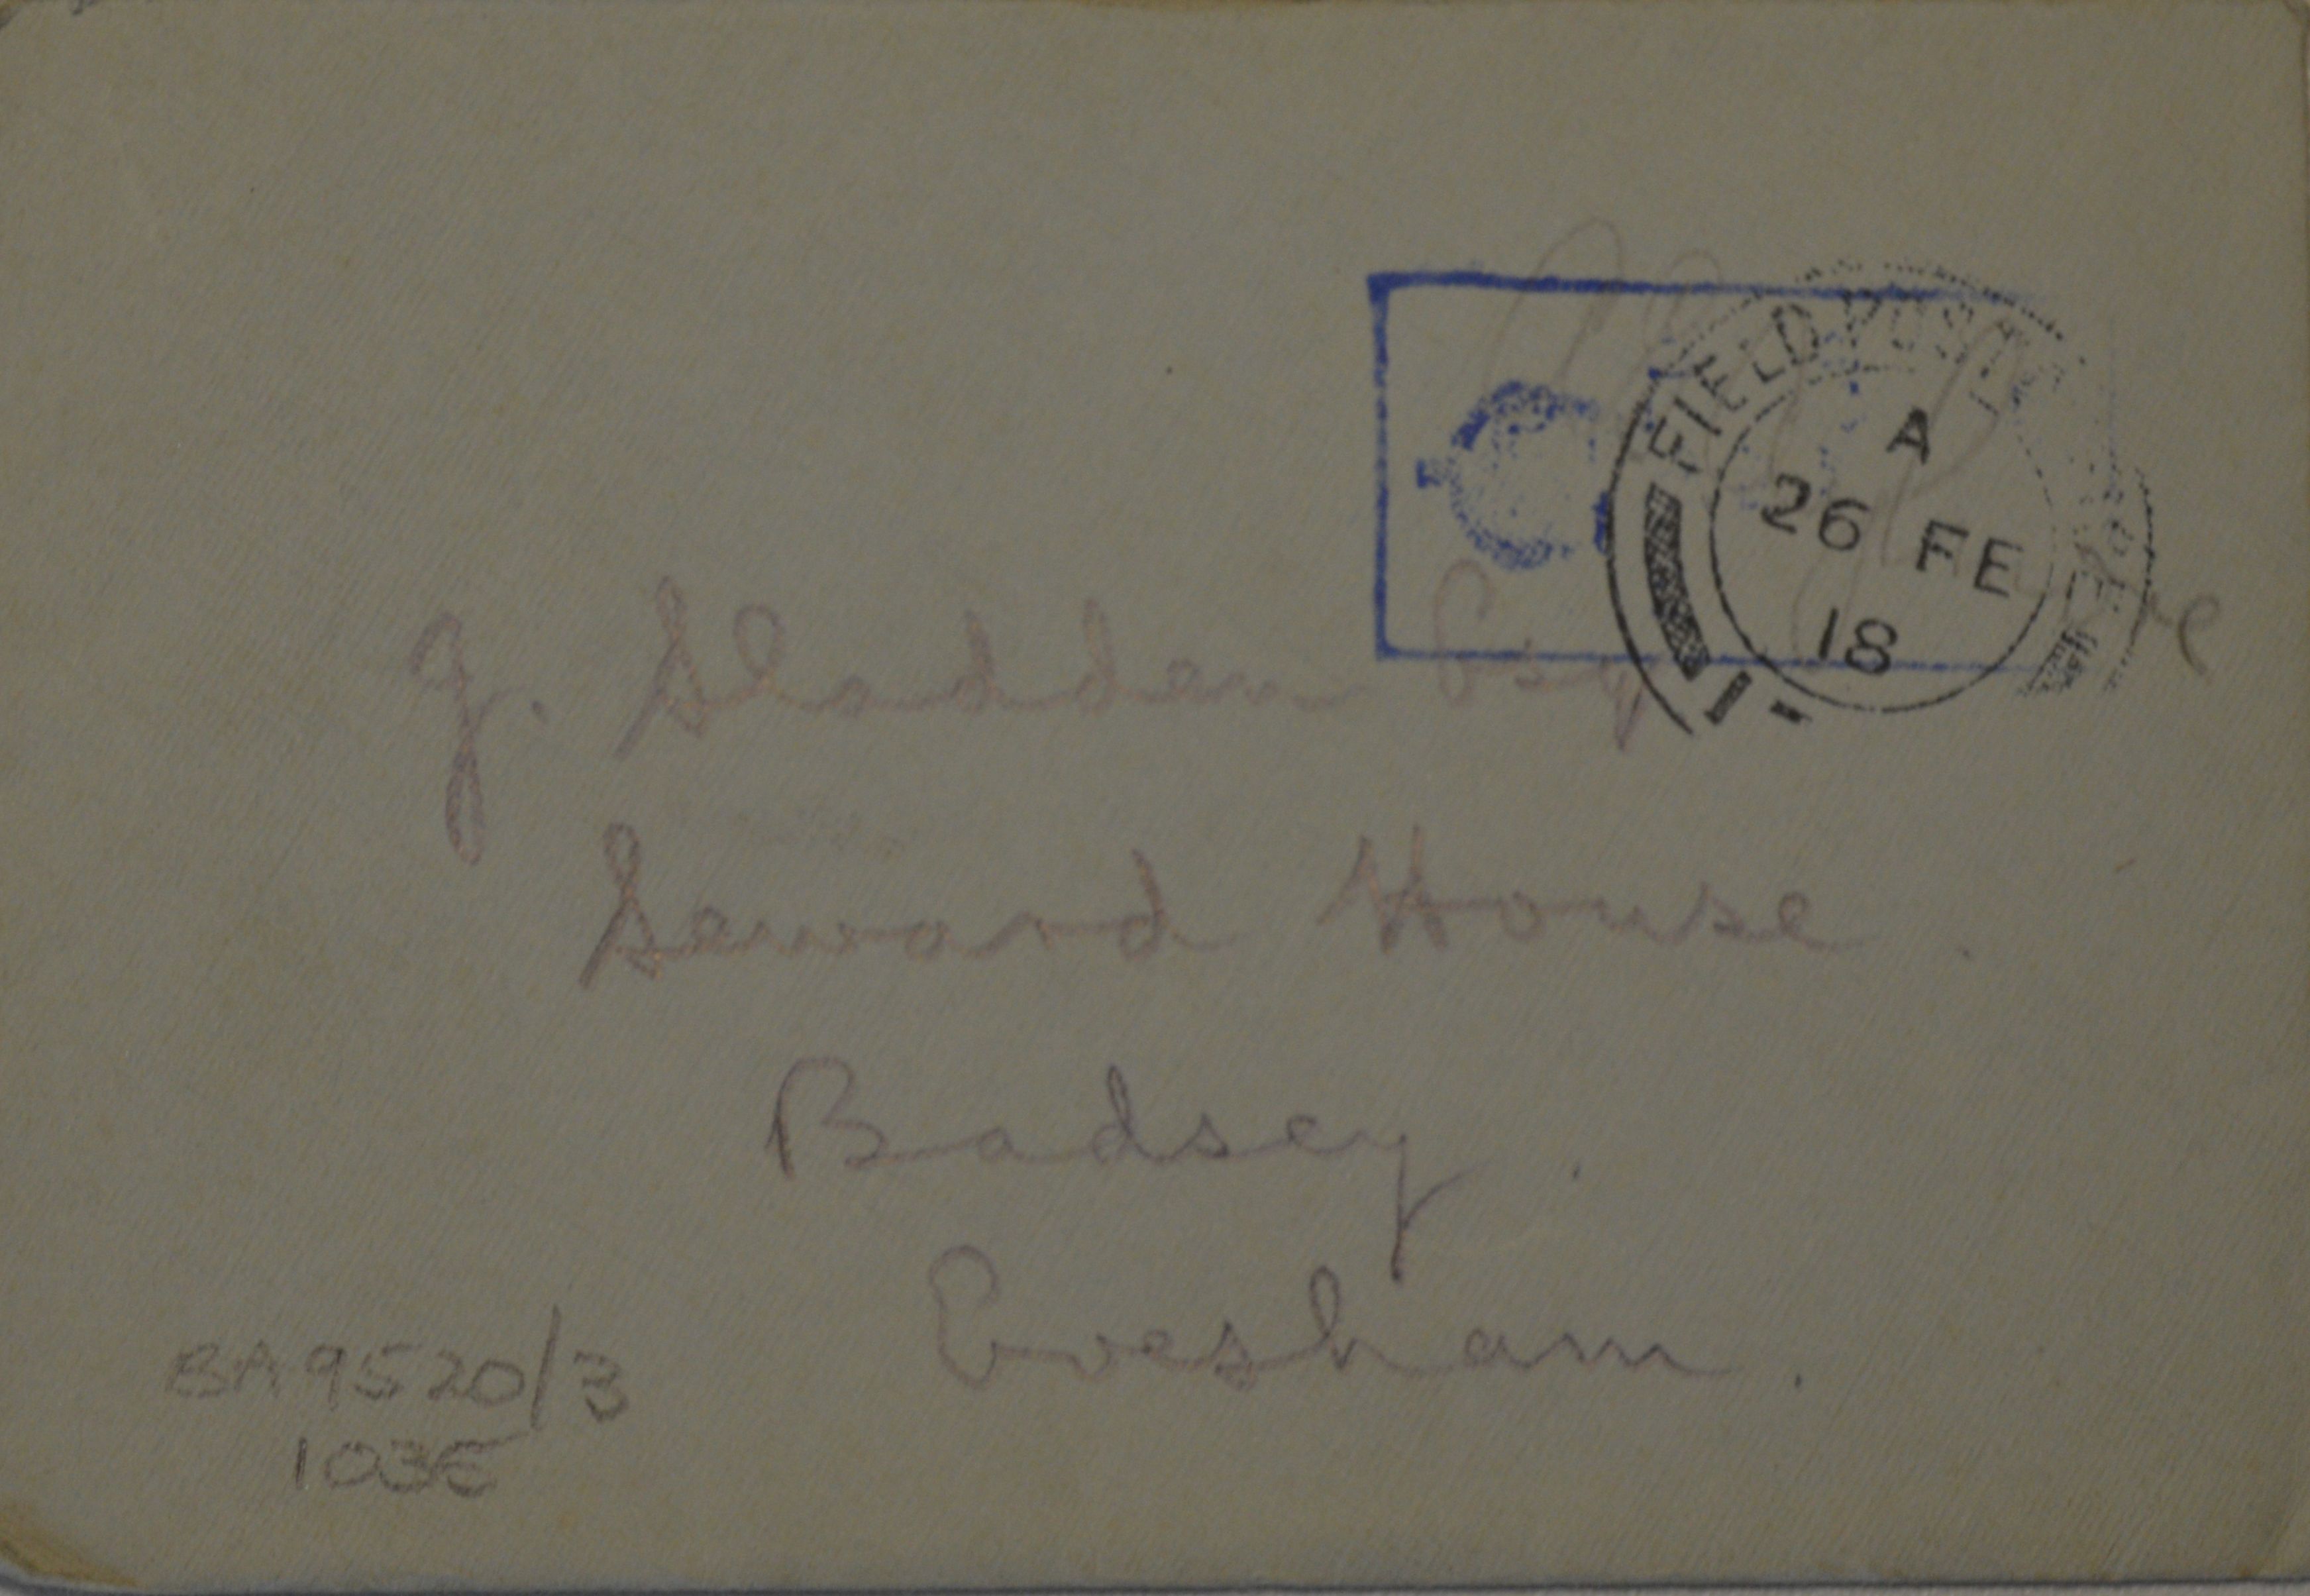 FIELD POST
A
26 FE
18
J. Sladden Esq
Seward House.
Badsey.
Evesham.
BA9520/3
103E